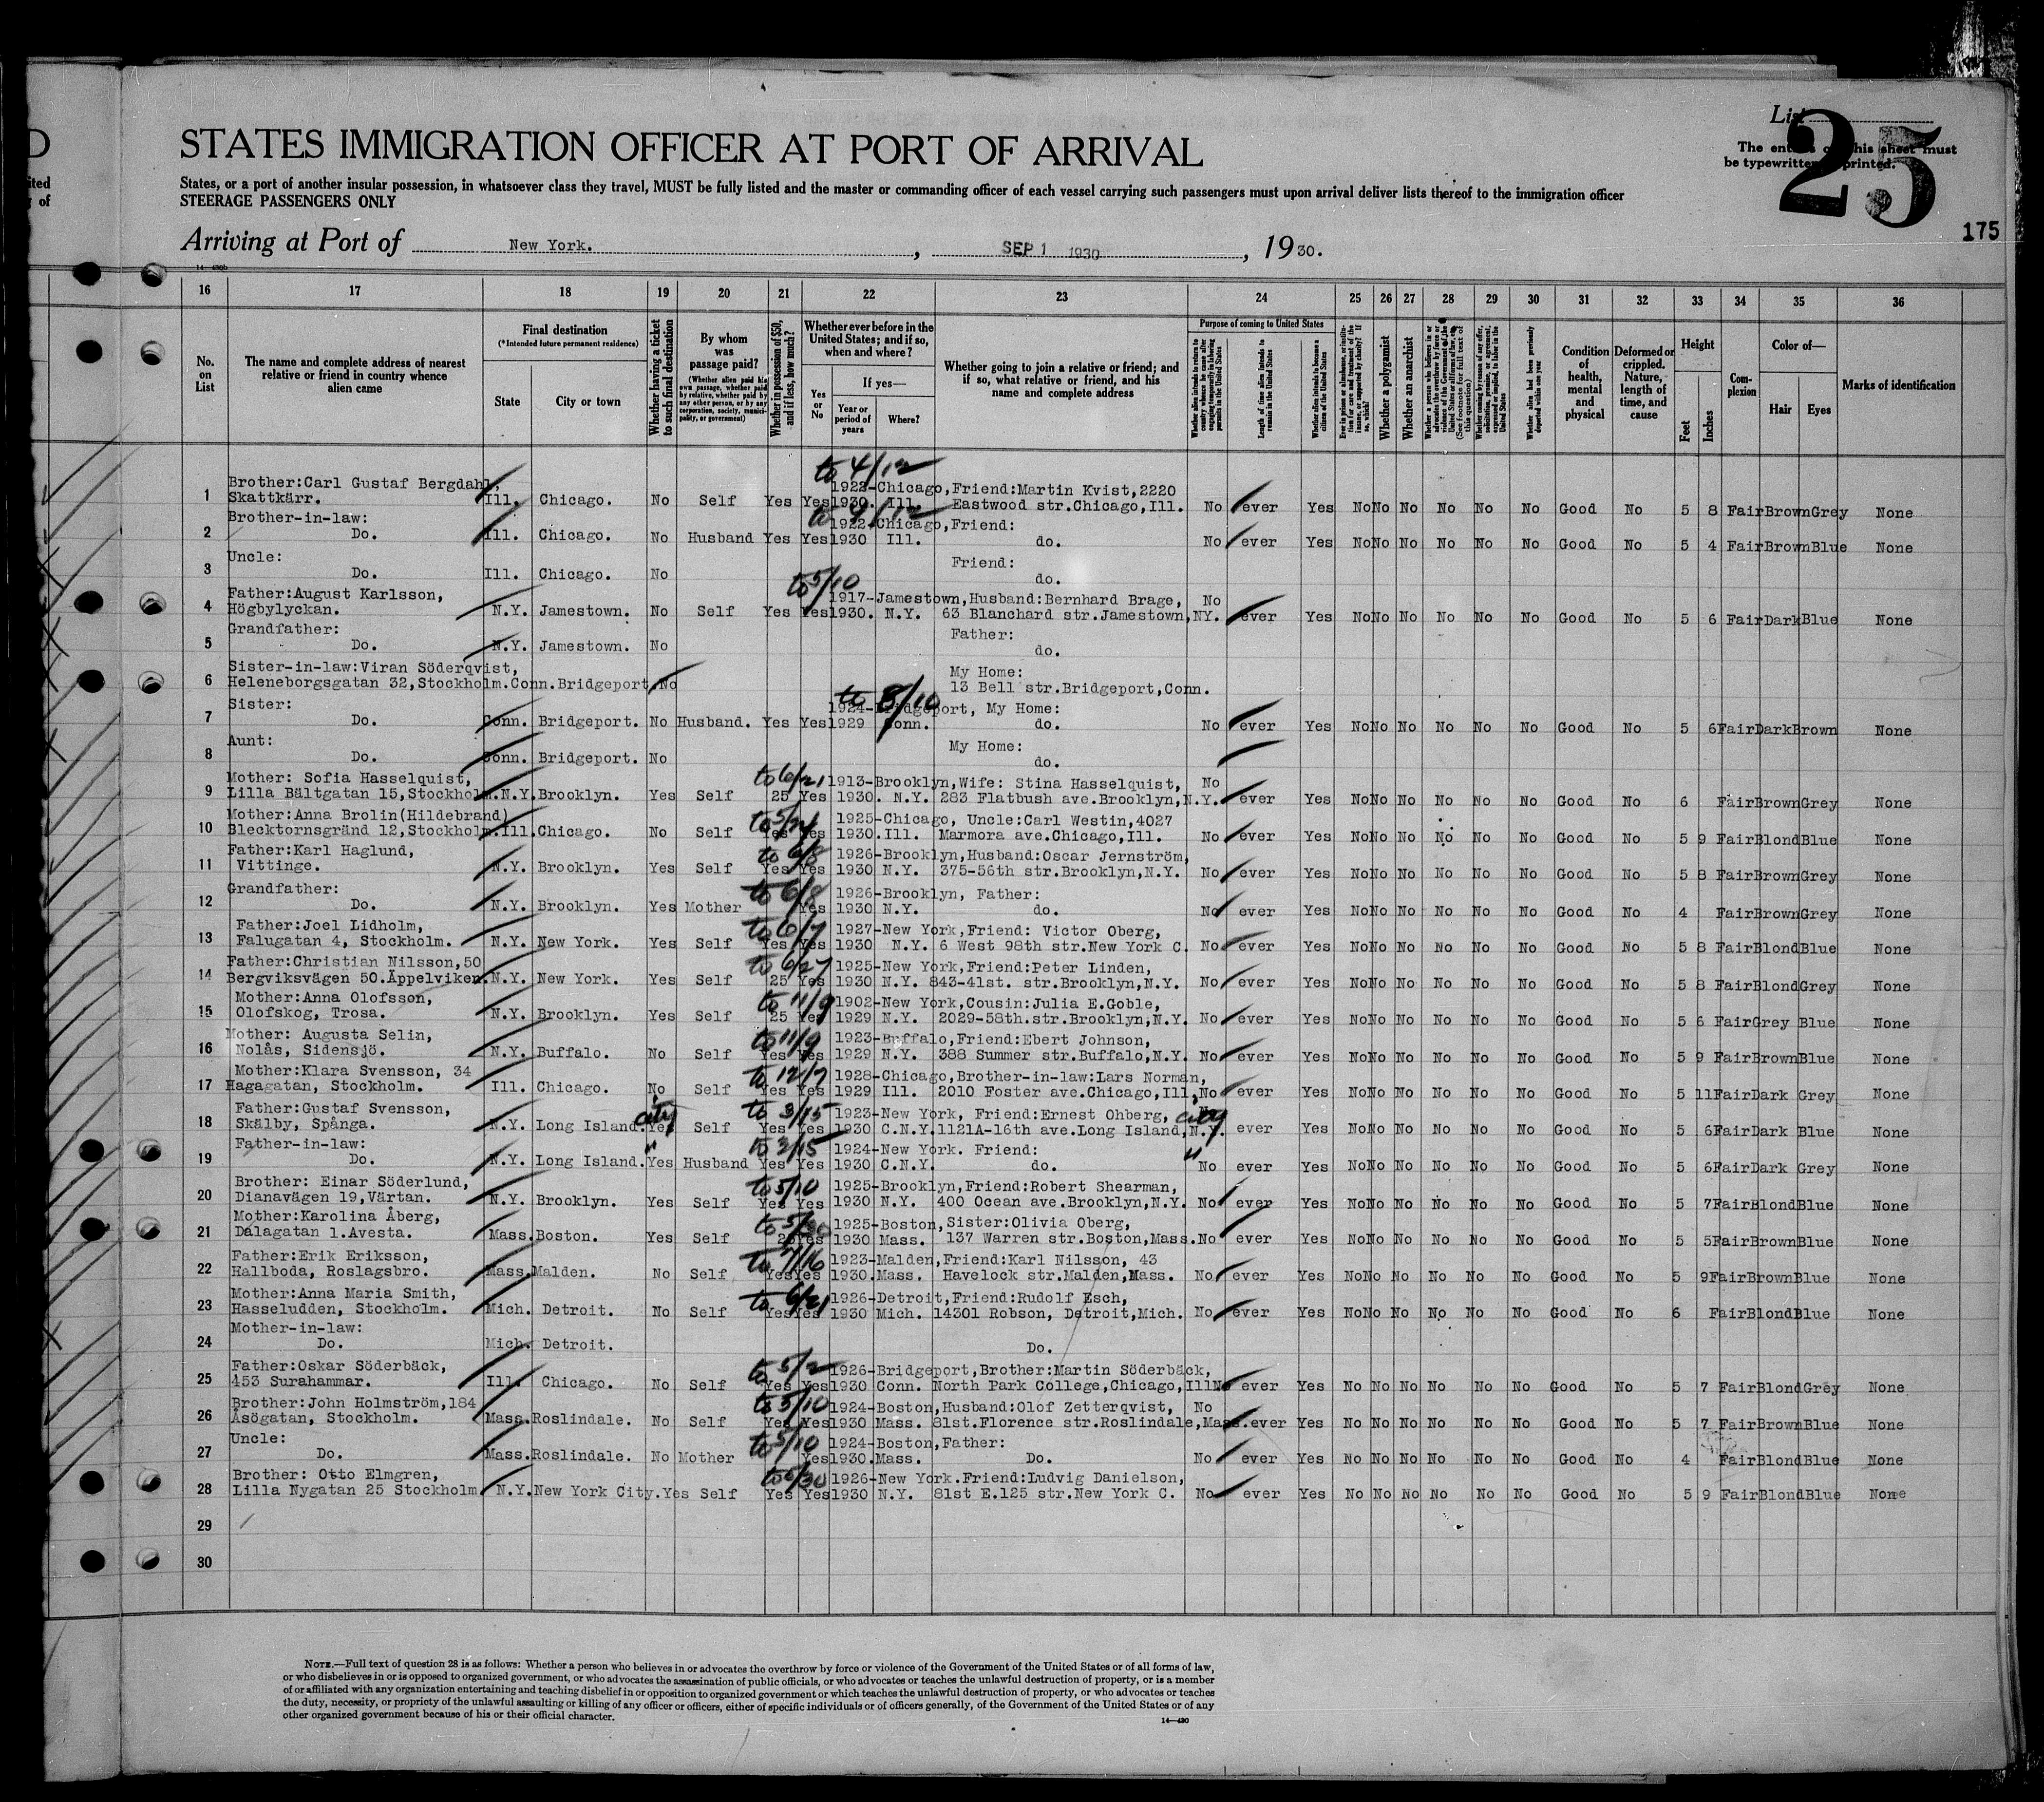 D
ited
of
List
25
The entries on this sheet must
be typewritten or printed.
175
STATES IMMIGRATION OFFICER AT PORT OF ARRIVAL
States, or a port of another insular possession, in whatsoever class they travel, MUST be fully listed and the master or commanding officer of each vessel carrying such passengers must upon arrival deliver lists thereof to the immigration officer
STEERAGE PASSENGERS ONLY
Arriving at Port of New York. , SEP 1 1930 , 1930.
16 17 18 19 20 21 22 23 24 25 26 27 28 29 30 31 32 33 34 35 36
No. on List
The name and complete address of nearest relative or friend in country whence alien came
Final destination
(*Intended future permanent residence)
State
City or town
Whether having a ticket to such final destination
By whom was passage paid?
(Whether alien paid his own passage, whether paid by relative, whether paid by any other person, or by any corporation, society, municipality, or government)
Whether in possession of $50, and if less, how much?
Whether ever before in the United States; and if so, when and where?
Yes or No
If yes—
Year or period of years
Where?
Whether going to join a relative or friend; and if so, what relative or friend, and his name and complete address
Purpose of coming to United States
Length of time alien intends to remain in the United States
Whether alien intends to become a citizen of the United States
Whether a polygamist
Whether an anarchist
Condition of health, mental and physical
Deformed or crippled. Nature, length of time, and cause
Height
Feet
Inches
Complexion
Color of—
Hair
Eyes
Marks of identification
to 4/12
Brother:Carl Gustaf Bergdahl, 1923-Chicago, Friend:Martin Kvist,2220
1 Skattkärr. Ill. Chicago. No Self Yes Yes 1930. Ill. Eastwood str.Chicago,Ill. No ever Yes No No No No No No Good No 5 8 Fair Brown Grey None
Brother-in-law: 1922-Chicago, Friend:
2 Do. Ill. Chicago. No Husband Yes Yes 1930 Ill. do. No ever Yes No No No No No No Good No 5 4 Fair Brown Blue None
Uncle: Friend:
3 Do. Ill. Chicago. No do.
to 5/10
Father:August Karlsson, 1917-Jamestown, Husband:Bernhard Brage, No
4 Högbylyckan. N.Y. Jamestown. No Self Yes Yes 1930. N.Y. 63 Blanchard str.Jamestown,NY. ever Yes No No No No No No Good No 5 6 Fair Dark Blue None
Grandfather: Father:
5 Do. N.Y. Jamestown. No do.
Sister-in-law:Viran Söderqvist, My Home:
6 Heleneborgsgatan 32,Stockholm. Conn. Bridgeport. No 13 Bell str.Bridgeport,Conn.
to 8/10
Sister: 1924-Bridgeport, My Home:
7 Do. Conn. Bridgeport. No Husband. Yes Yes 1929 Conn. do. No ever Yes No No No No No No Good No 5 6 Fair Dark Brown None
Aunt: My Home:
8 Do. Conn. Bridgeport. No do.
to 6/21
Mother: Sofia Hasselquist, 1913-Brooklyn, Wife: Stina Hasselquist, No
9 Lilla Bältgatan 15,Stockholm. N.Y. Brooklyn. Yes Self 25 Yes 1930. N.Y. 283 Flatbush ave.Brooklyn,N.Y. ever Yes No No No No No No Good No 6 Fair Brown Grey None
Mother:Anna Brolin(Hildebrand) 1925-Chicago, Uncle:Carl Westin,4027
10 Blecktornsgränd 12,Stockholm. Ill. Chicago. No Self Yes Yes 1930. Ill. Marmora ave.Chicago,Ill. No ever Yes No No No No No No Good No 5 9 Fair Blond Blue None
to 6/8
Father:Karl Haglund, 1926-Brooklyn, Husband:Oscar Jernström,
11 Vittinge. N.Y. Brooklyn. Yes Self Yes Yes 1930 N.Y. 375-56th str.Brooklyn,N.Y. No ever Yes No No No No No No Good No 5 8 Fair Brown Grey None
to 6/8
Grandfather: 1926-Brooklyn, Father:
12 Do. N.Y. Brooklyn. Yes Mother Yes 1930 N.Y. do. No ever Yes No No No No No No Good No 4 Fair Brown Grey None
to 6/7
Father:Joel Lidholm, 1927-New York, Friend: Victor Oberg,
13 Falugatan 4, Stockholm. N.Y. New York. Yes Self Yes Yes 1930 N.Y. 6 West 98th str.New York C. No ever Yes No No No No No No Good No 5 8 Fair Blond Blue None
to 6/27
Father:Christian Nilsson,50 1925-New York, Friend:Peter Linden,
14 Bergviksvägen 50.Äppelviken. N.Y. New York. Yes Self 25 Yes 1930 N.Y. 843-41st. str.Brooklyn,N.Y. No ever Yes No No No No No No Good No 5 8 Fair Blond Grey None
to 11/9
Mother:Anna Olofsson, 1902-New York, Cousin:Julia E.Goble,
15 Olofskog, Trosa. N.Y. Brooklyn. Yes Self 25 Yes 1929 N.Y. 2029-58th.str.Brooklyn,N.Y. No ever Yes No No No No No No Good No 5 6 Fair Grey Blue None
to 11/9
Mother: Augusta Selin, 1923-Buffalo, Friend:Ebert Johnson,
16 Nolås, Sidensjö. N.Y. Buffalo. No Self Yes Yes 1929 N.Y. 388 Summer str.Buffalo,N.Y. No ever Yes No No No No No No Good No 5 9 Fair Brown Blue None
to 12/7
Mother:Klara Svensson, 34 1928-Chicago, Brother-in-law:Lars Norman,
17 Hagagatan, Stockholm. Ill. Chicago. No Self Yes Yes 1929 Ill. 2010 Foster ave.Chicago,Ill. No ever Yes No No No No No No Good No 5 11 Fair Dark Grey None
city to 3/15 city
Father:Gustaf Svensson, 1923-New York, Friend:Ernest Ohberg,
18 Skälby, Spånga. N.Y. Long Island. Yes Self Yes Yes 1930 C.N.Y. 1121A-16th ave.Long Island,N.Y. ever Yes No No No No No No Good No 5 6 Fair Dark Blue None
" to 3/15 "
Father-in-law: 1924-New York. Friend:
19 Do. N.Y. Long Island. Yes Husband Yes Yes 1930 C.N.Y. do. No ever Yes No No No No No No Good No 5 6 Fair Dark Grey None
to 5/10
Brother: Einar Söderlund, 1925-Brooklyn, Friend:Robert Shearman,
20 Dianavägen 19,Värtan. N.Y. Brooklyn. Yes Self Yes Yes 1930 N.Y. 400 Ocean ave.Brooklyn,N.Y. No ever Yes No No No No No No Good No 5 7 Fair Blond Blue None
Mother:Karolina Åberg, 1925-Boston, Sister:Olivia Oberg,
21 Dalagatan 1.Avesta. Mass. Boston. Yes Self Yes 1930 Mass. 137 Warren str.Boston,Mass. No ever Yes No No No No No No Good No 5 5 Fair Brown Blue None
Father:Erik Eriksson, 1923-Malden, Friend:Karl Nilsson, 43
22 Hallboda, Roslagsbro. Mass. Malden. No Self Yes Yes 1930. Mass. Havelock str.Malden,Mass. No ever Yes No No No No No No Good No 5 9 Fair Brown Blue None
to 6/21
Mother:Anna Maria Smith, 1926-Detroit, Friend:Rudolf Esch,
23 Hasseludden, Stockholm. Mich. Detroit. No Self Yes Yes 1930 Mich. 14301 Robson, Detroit,Mich. No ever Yes No No No No No No Good No 6 Fair Blond Blue None
Mother-in-law:
24 Do. Mich. Detroit. Do.
to 5/2
Father:Oskar Söderbäck, 1926-Bridgeport, Brother:Martin Söderbäck,
25 453 Surahammar. Ill. Chicago. No Self Yes Yes 1930 Conn. North Park College,Chicago,Ill No ever Yes No No No No No No Good No 5 7 Fair Blond Grey None
to 5/10
Brother:John Holmström,184 1924-Boston, Husband:Olof Zetterqvist, No
26 Åsögatan, Stockholm. Mass. Roslindale. No Self Yes Yes 1930 Mass. 81st.Florence str.Roslindale,Mass. ever Yes No No No No No No Good No 5 7 Fair Brown Blue None
to 5/10
Uncle: 1924-Boston, Father:
27 Do. Mass. Roslindale. No Mother Yes 1930. Mass. Do. No ever Yes No No No No No No Good No 4 Fair Blond Blue None
Brother: Otto Elmgren, 1926-New York. Friend:Ludvig Danielson,
28 Lilla Nygatan 25 Stockholm N.Y. New York City. Yes Self Yes Yes 1930 N.Y. 81st E.125 str.New York C. No ever Yes No No No No No No Good No 5 9 Fair Blond Blue None
29
30
NOTE.—Full text of question 28 is as follows: Whether a person who believes in or advocates the overthrow by force or violence of the Government of the United States or of all forms of law,
or who disbelieves in or is opposed to organized government, or who advocates the assassination of public officials, or who advocates or teaches the unlawful destruction of property, or is a member
of or affiliated with any organization entertaining and teaching disbelief in or opposition to organized government or which teaches the unlawful destruction of property, or who advocates or teaches
the duty, necessity, or propriety of the unlawful assaulting or killing of any officer or officers, either of specific individuals or of officers generally, of the Government of the United States or of any
other organized government because of his or their official character.
14—430